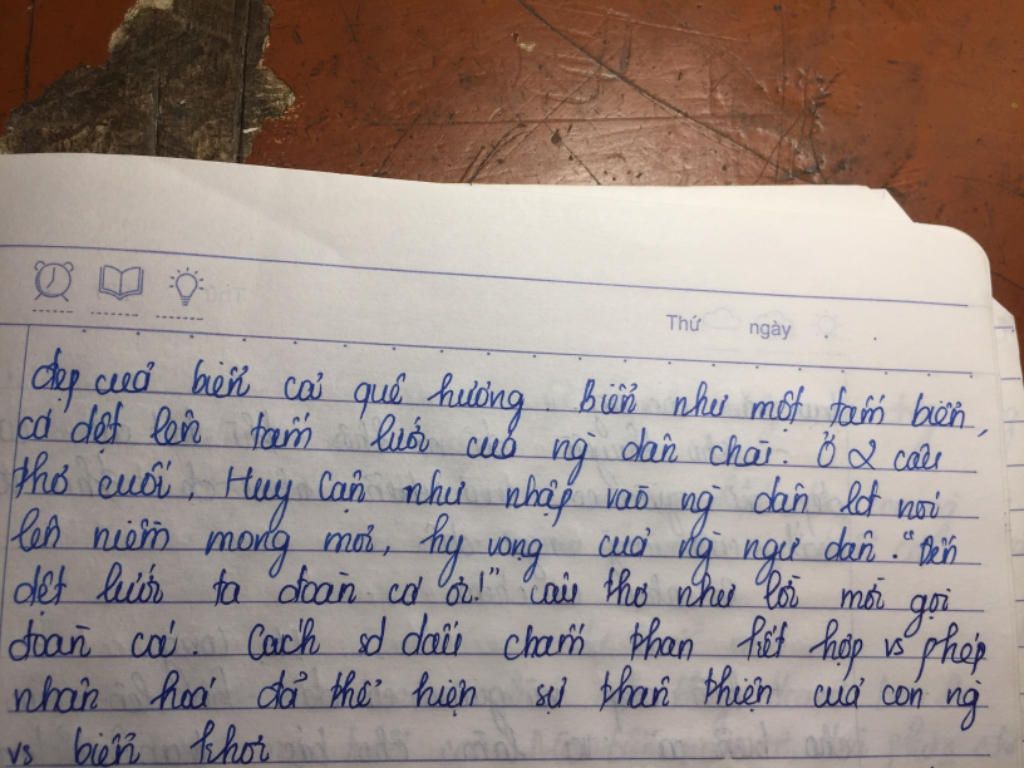 Thứ ngày
đẹp cuả biển cả quê hương. Biển như một tấm biển,
cá dệt lên tấm lưới cuả ng dân chài. Ở 2 câu
thơ cuối, Huy Cận như nhập vào ng dân lđ nói
lên niềm mong mỏi, hy vọng cuả ng ngư dân. "Đến
dệt lưới ta đoàn cá ơi!" câu thơ như lời mời gọi
đoàn cá. Cách sd dấu chấm than kết hợp vs phép
nhân hoá đã thể hiện sự thân thiện cuả con ng
vs biển khơi